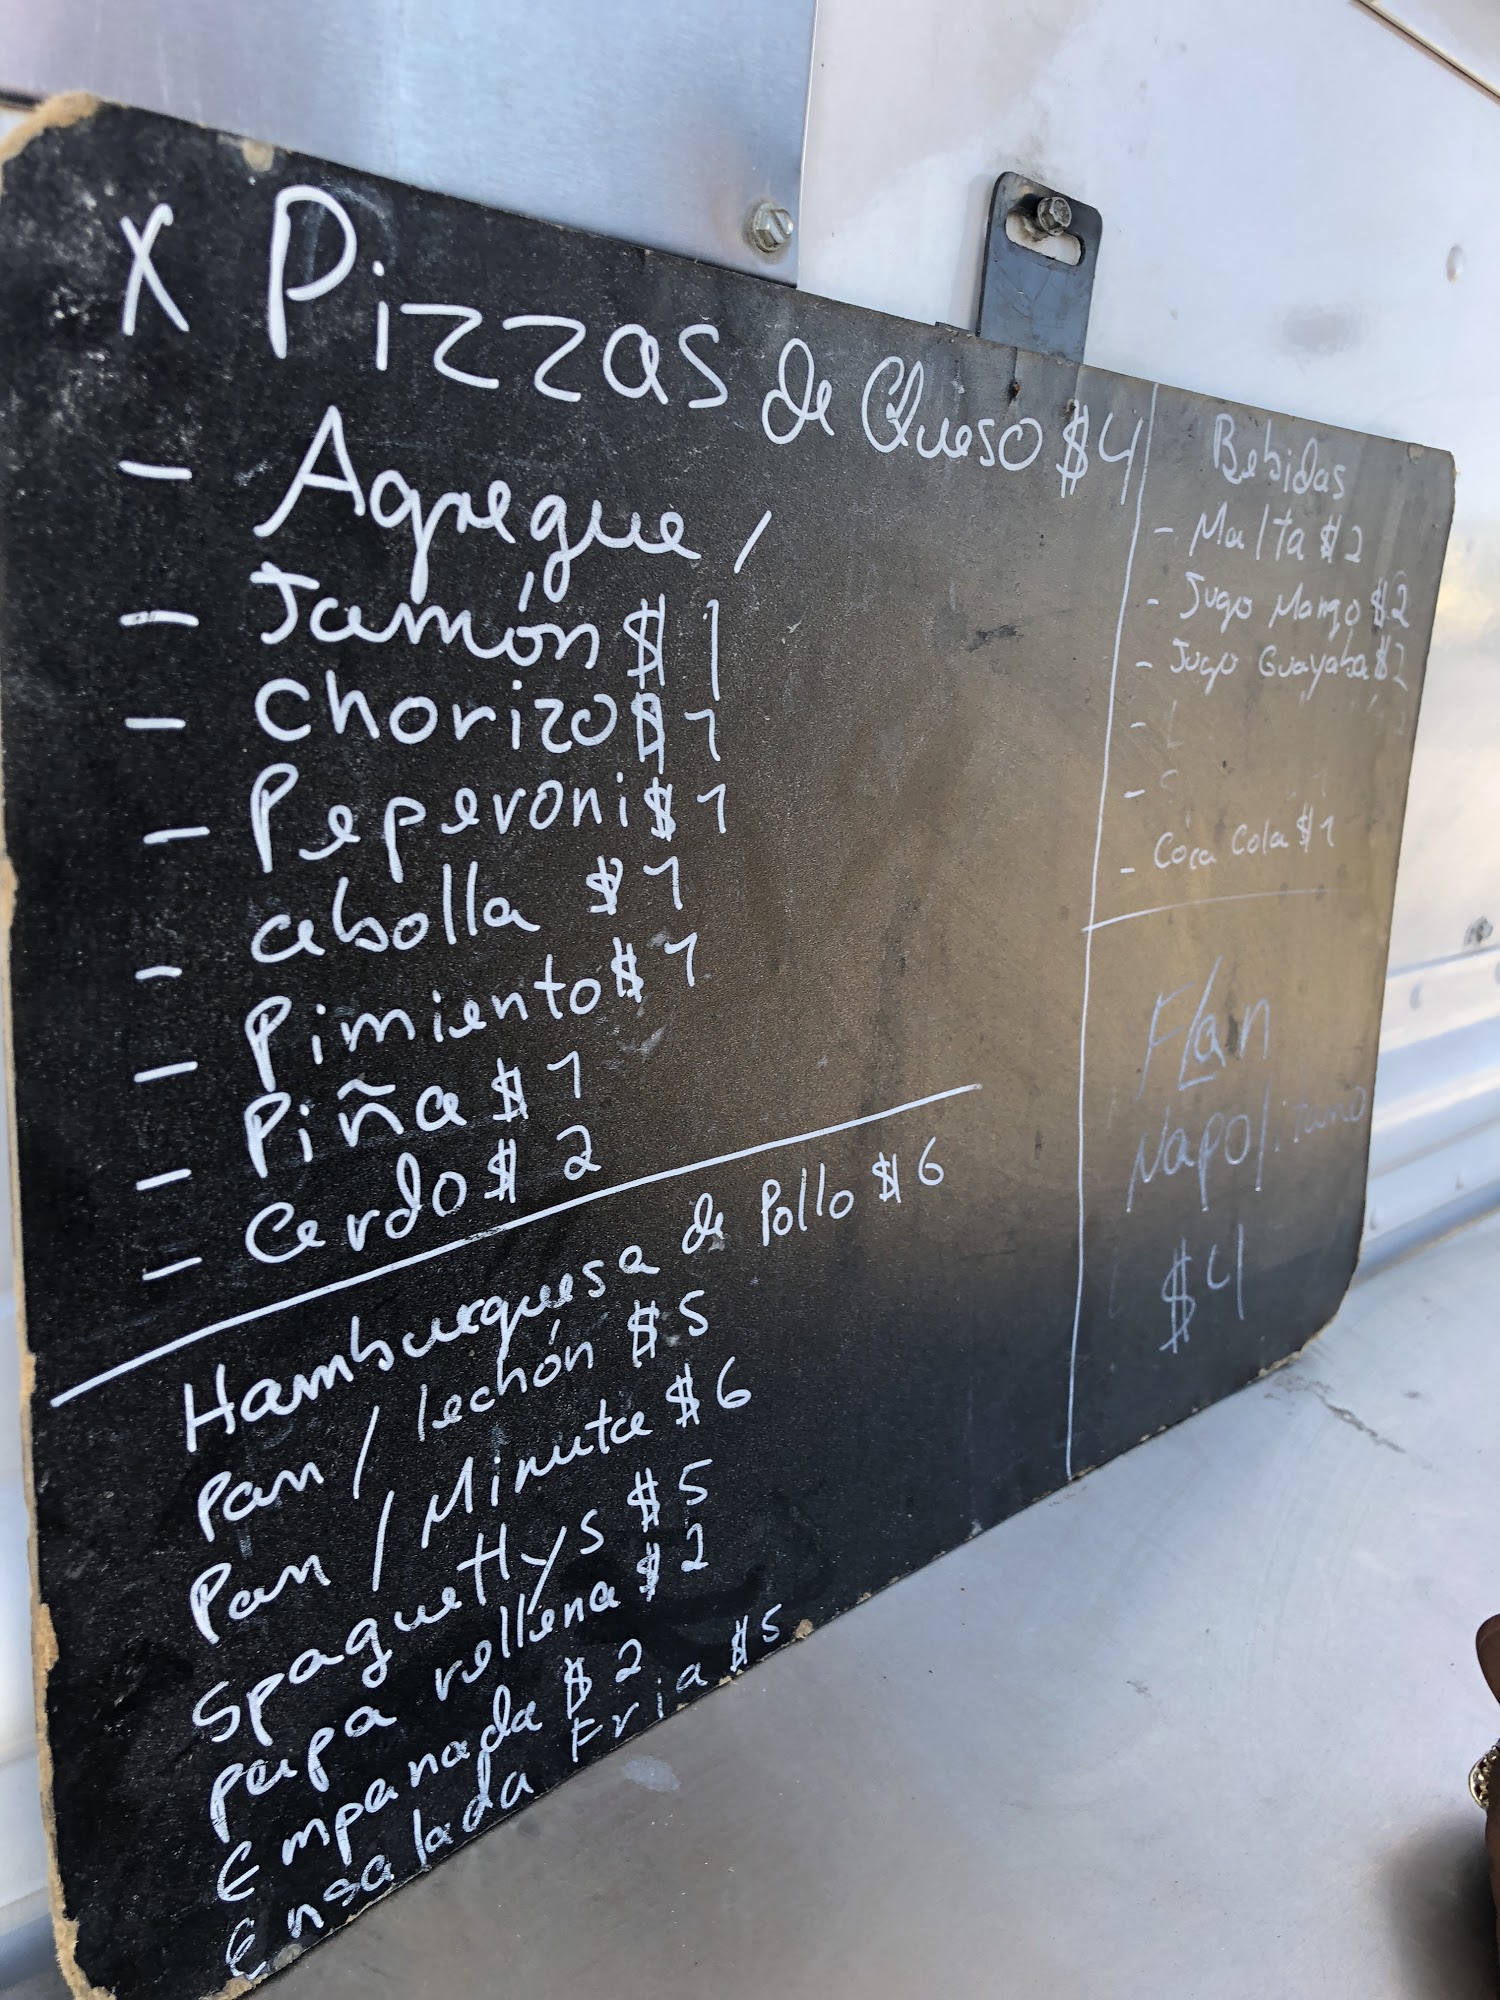 X Pizzas de Queso $4
- Agregue /
- Jamón $1
- chorizo $1
- Peperoni $1
- cebolla $1
- Pimiento $1
- Piña $1
- Cerdo $2
Hamburguesa de Pollo $6
Pan / lechón $5
Pan / Minuta $6
Spaguettys $5
papa rellena $2
Empanada $2
Ensalada Fria $5
Bebidas
- Malta $2
- Jugo Mango $2
- Jugo Guayaba $2
- Coca Cola $1
Flan
Napolitano
$4